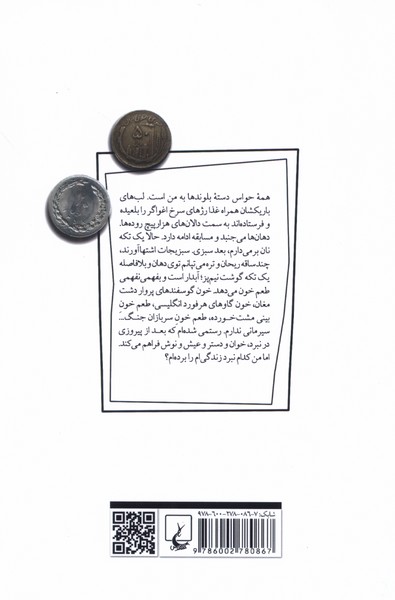 ۵۰
همهٔ حواس دستهٔ بلوندها به من است. لب‌های
باریکشان همراه غذا رژهای سرخ اغواگر را بلعیده
و فرستاده‌اند به سمت دالان‌های هزارپیچ روده‌ها.
دهان‌ها می‌جنبد و مسابقه ادامه دارد. حالا یک تکه
نان برمی‌دارم، بعد سبزی. سبزیجات اشتهاآورند،
چند ساقه ریحان و تره می‌تپانم توی دهان و بلافاصله
یک تکه گوشت نیم‌پز؛ آبدار است و بفهمی نفهمی
طعم خون می‌دهد. خون گوسفندهای پروار دشت
مغان، خون گاوهای هرفورد انگلیسی، طعم خون
بینی مشت‌خورده، طعم خون سربازان جنگ...
سیرمانی ندارم. رستمی شده‌ام که بعد از پیروزی
در نبرد، خوان و دستر و عیش و نوش فراهم می‌کند.
اما من کدام نبرد زندگی‌ام را برده‌ام؟
شابک: ۷-۰۸۶-۲۷۸-۶۰۰-۹۷۸
9786002780867